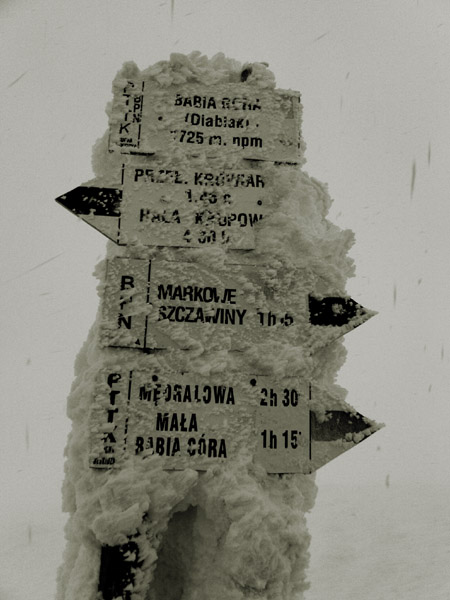 PTTK
BABIA GÓRA
(Diablak)
1725 m. npm
PRZEŁ. KROWIAR
HALA KRUPOW
BPN
MARKOWE
SZCZAWINY 1h
PTTK
MĘDRALOWA 2h 30'
MAŁA
BABIA GÓRA 1h 15'